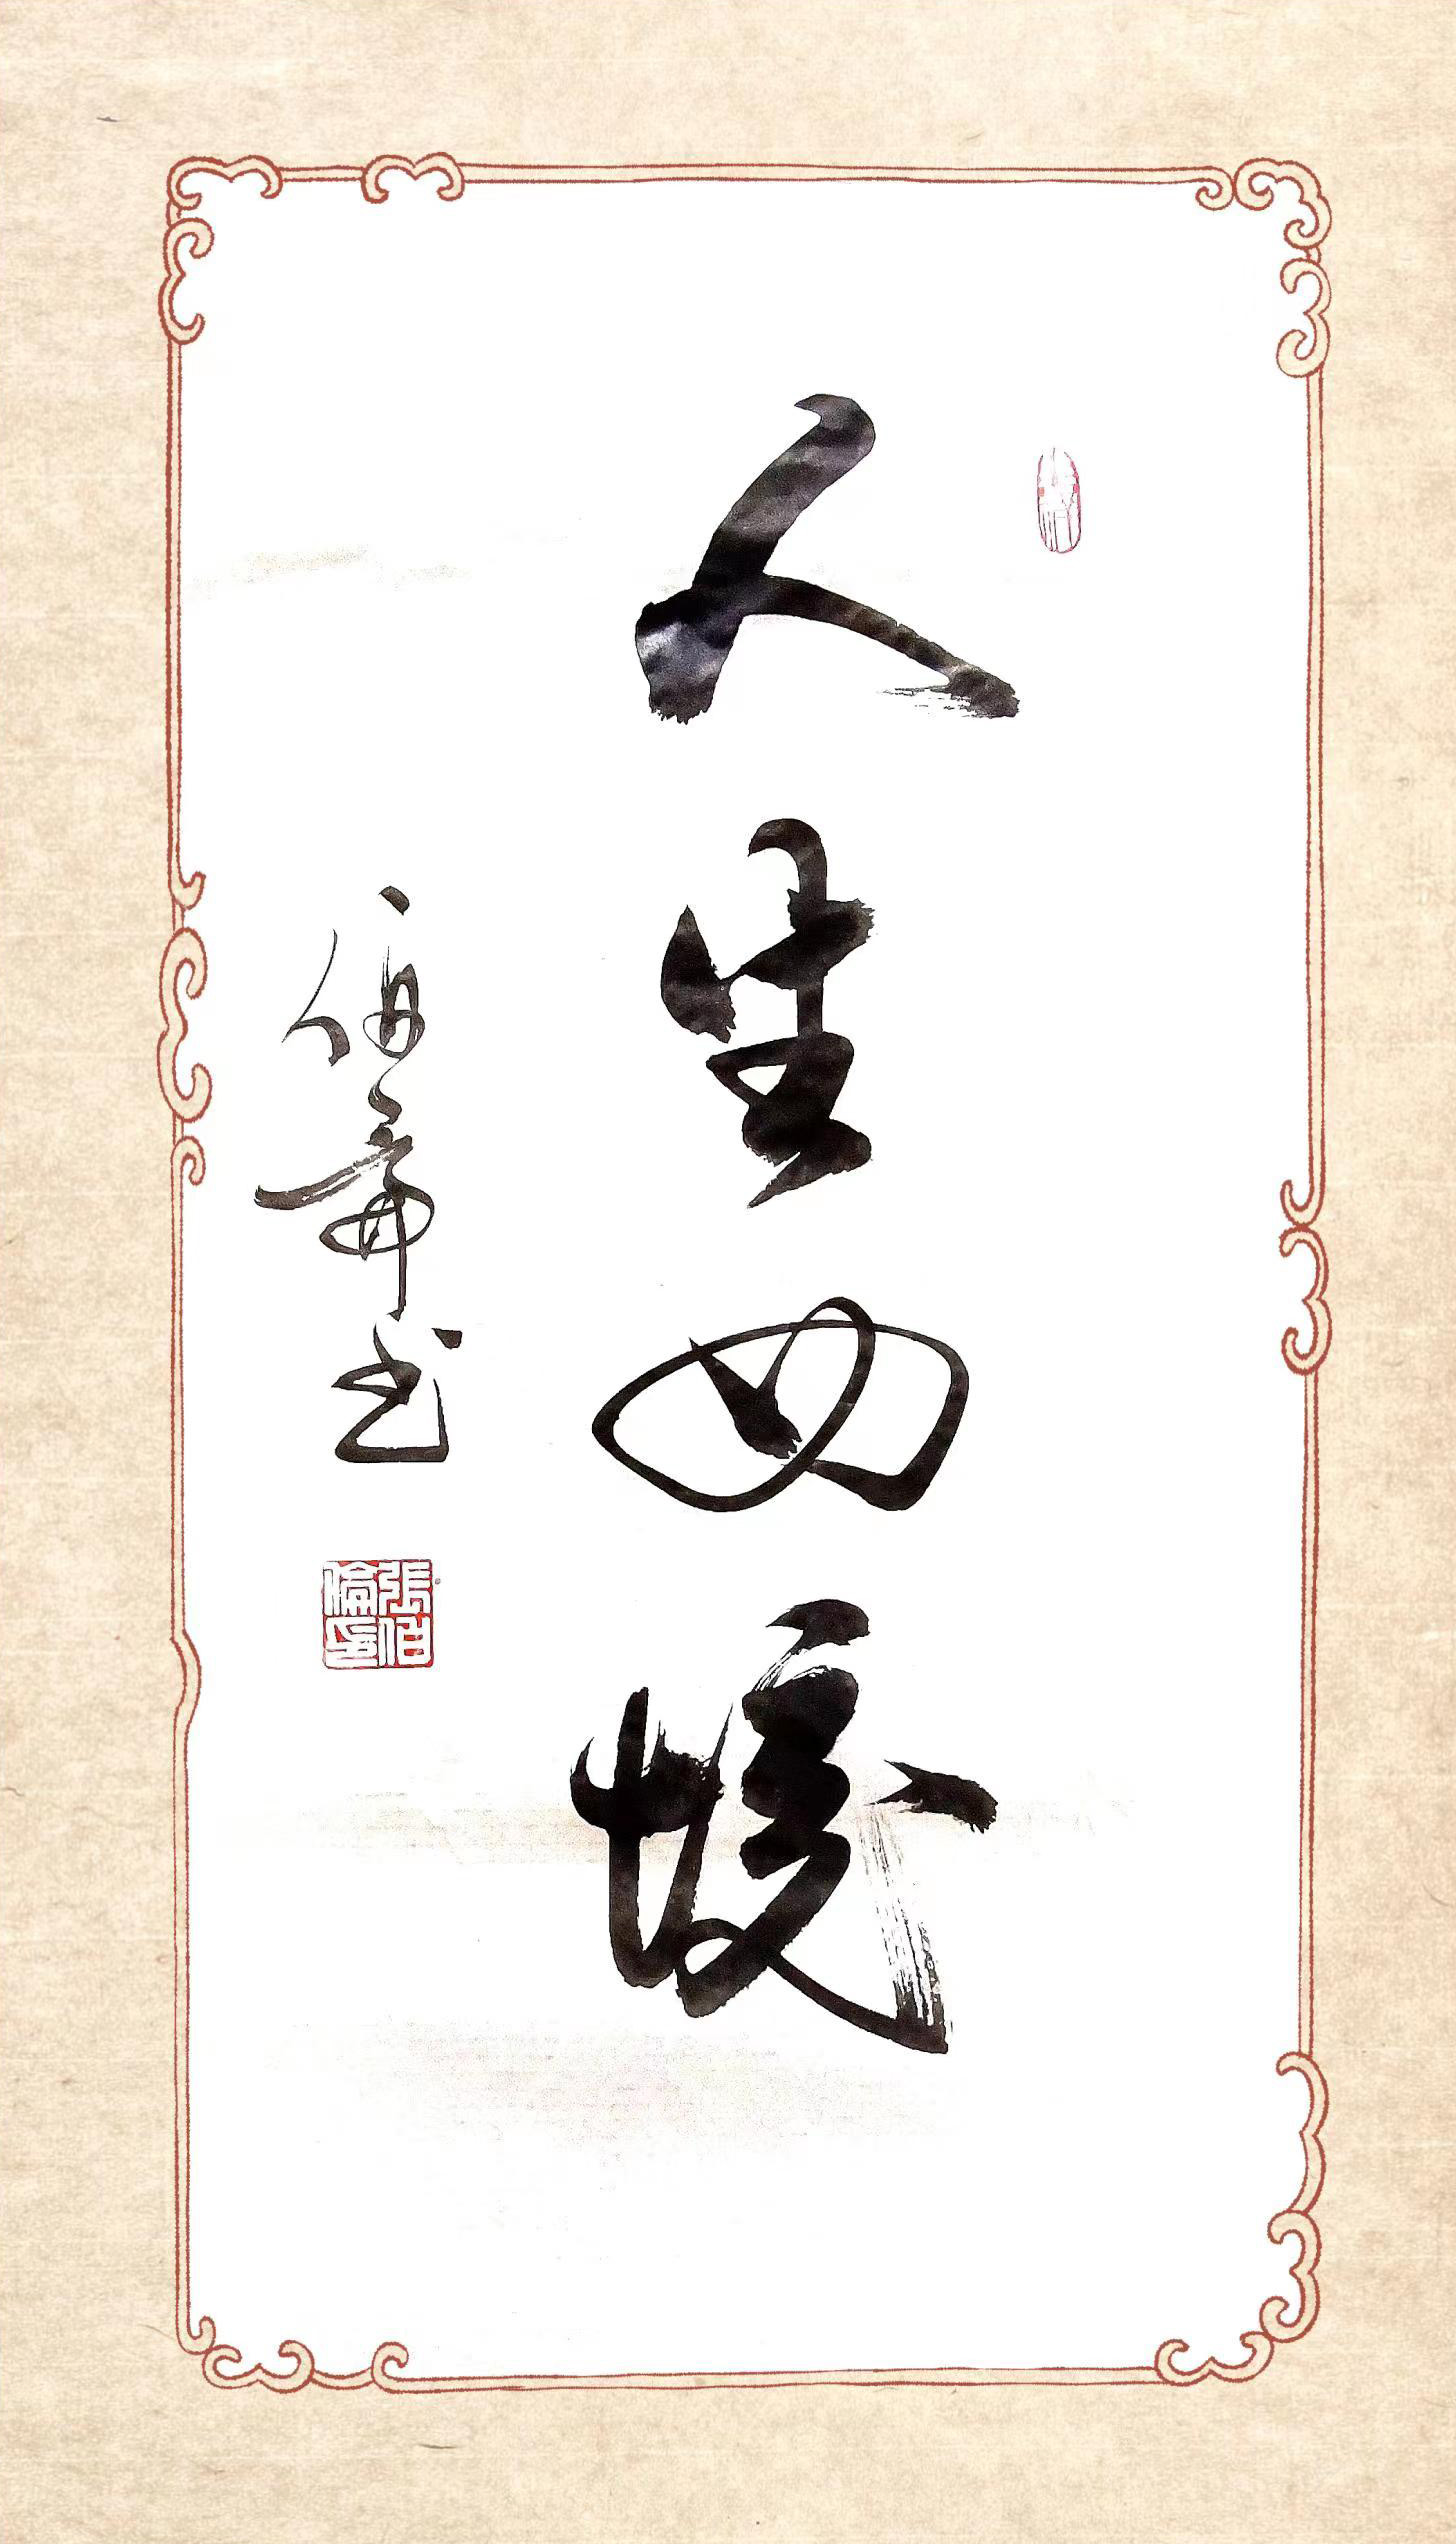 人生如戲
伯倫书
張伯倫印